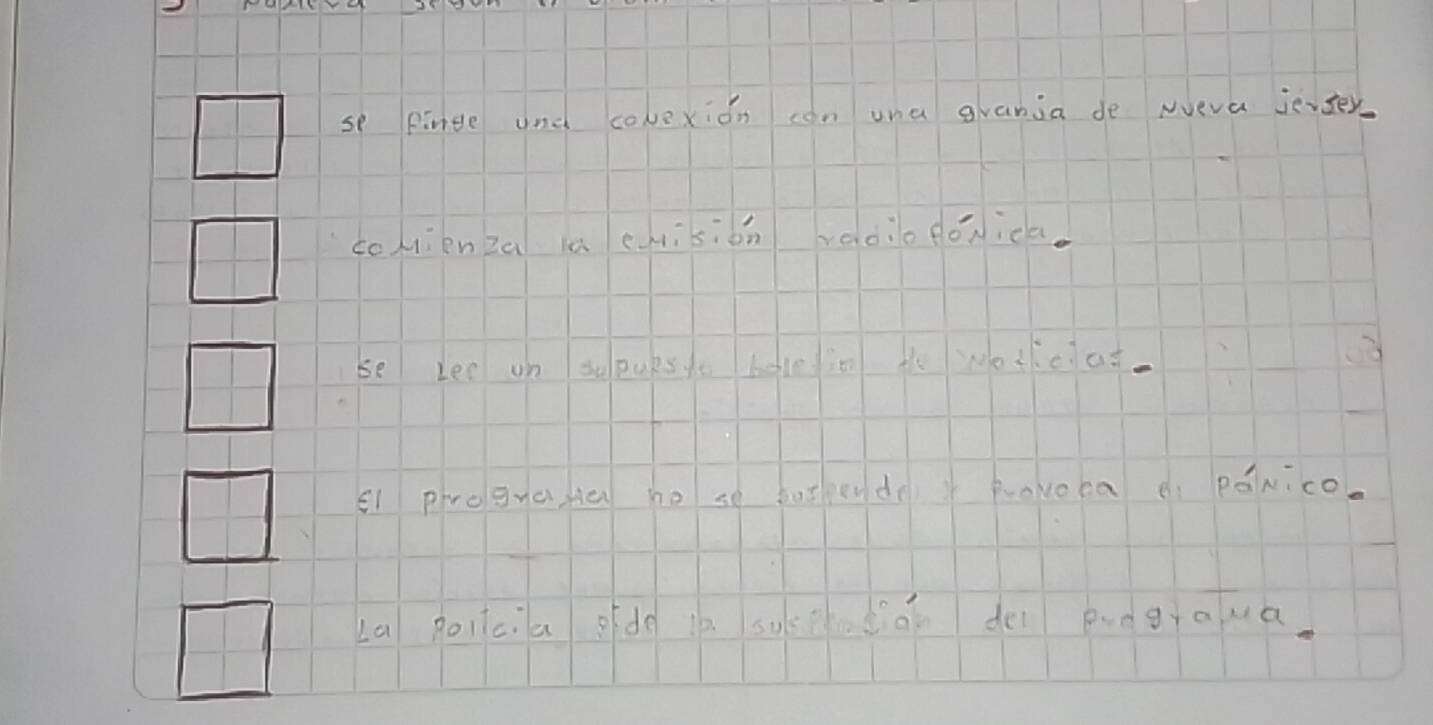 se finge una conexión con una granja de Nueva jersey.
comienza la emisión radiofónica.
se lee un supuesto boletín de noticias.
El programa no se suspende y provoca el pánico.
La policia pide la suspención del programa.